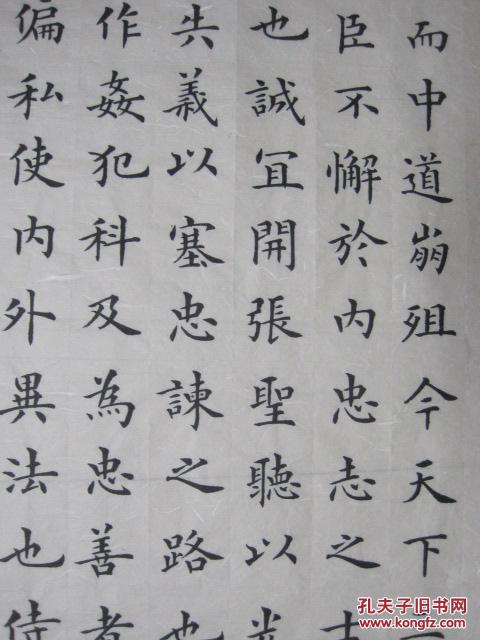 而中道崩殂今天下
臣不懈於内忠志之士
也誠宜開張聖聽以光
失義以塞忠諫之路也
作姦犯科及為忠善者
偏私使内外異法也侍
孔夫子旧书网
www.kongfz.com